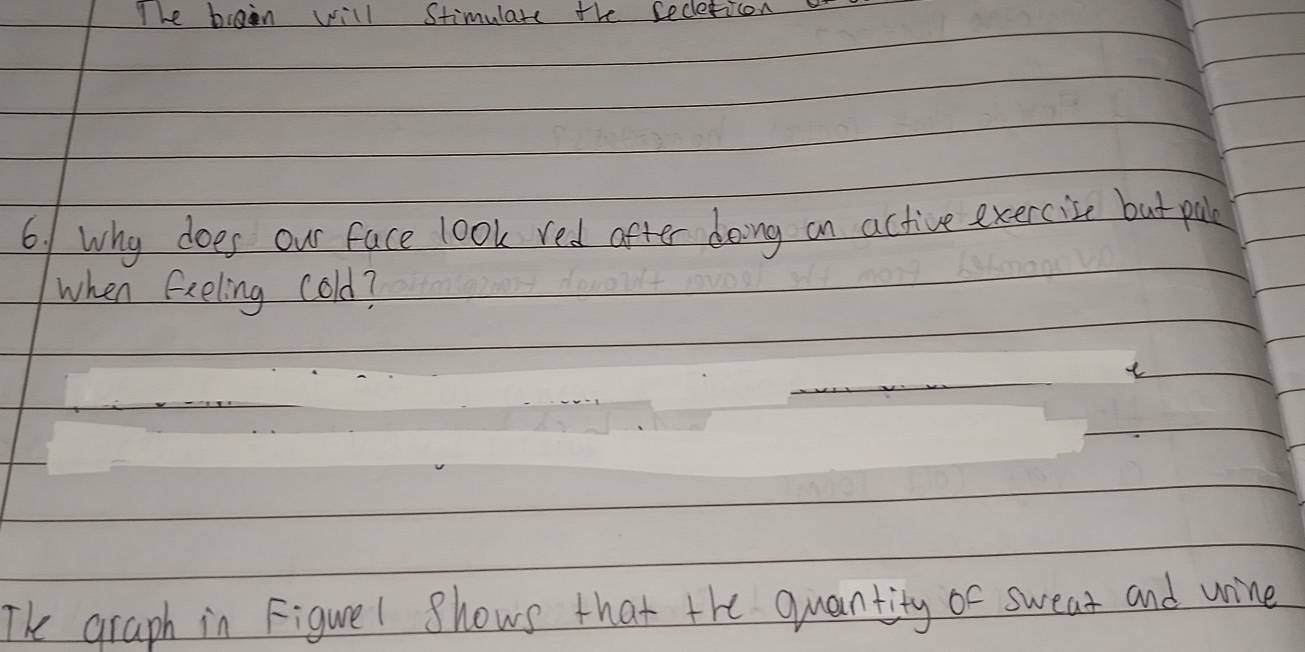 The brain will Stimulate the
6.) Why does our face look red after doing an active exercise but pale
When feeling cold?
The graph in Figure 1 Shows that the quantity of sweat and urine